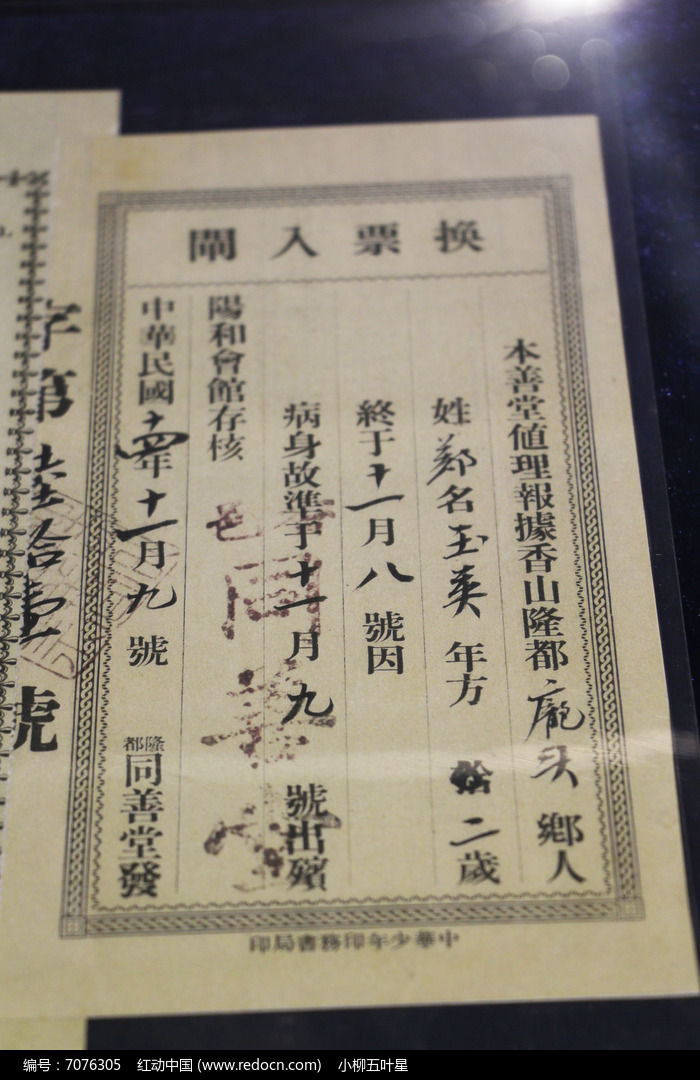 換票入閘
本善堂値理報據香山隆都龐头鄉人
姓鄭名玉英年方拾二歲
終于十一月八號因
病身故準于十一月九號出殯
陽和會館存核
中華民國十四年十一月九號
隆都同善堂發
字第壹拾壹號
中華少年印務書局印
编号：7076305 红动中国 (www.redocn.com) 小柳五叶星